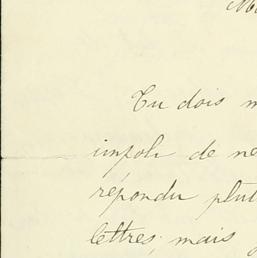 Tu dois
impoli de ne
répondu plut
lettres, mais